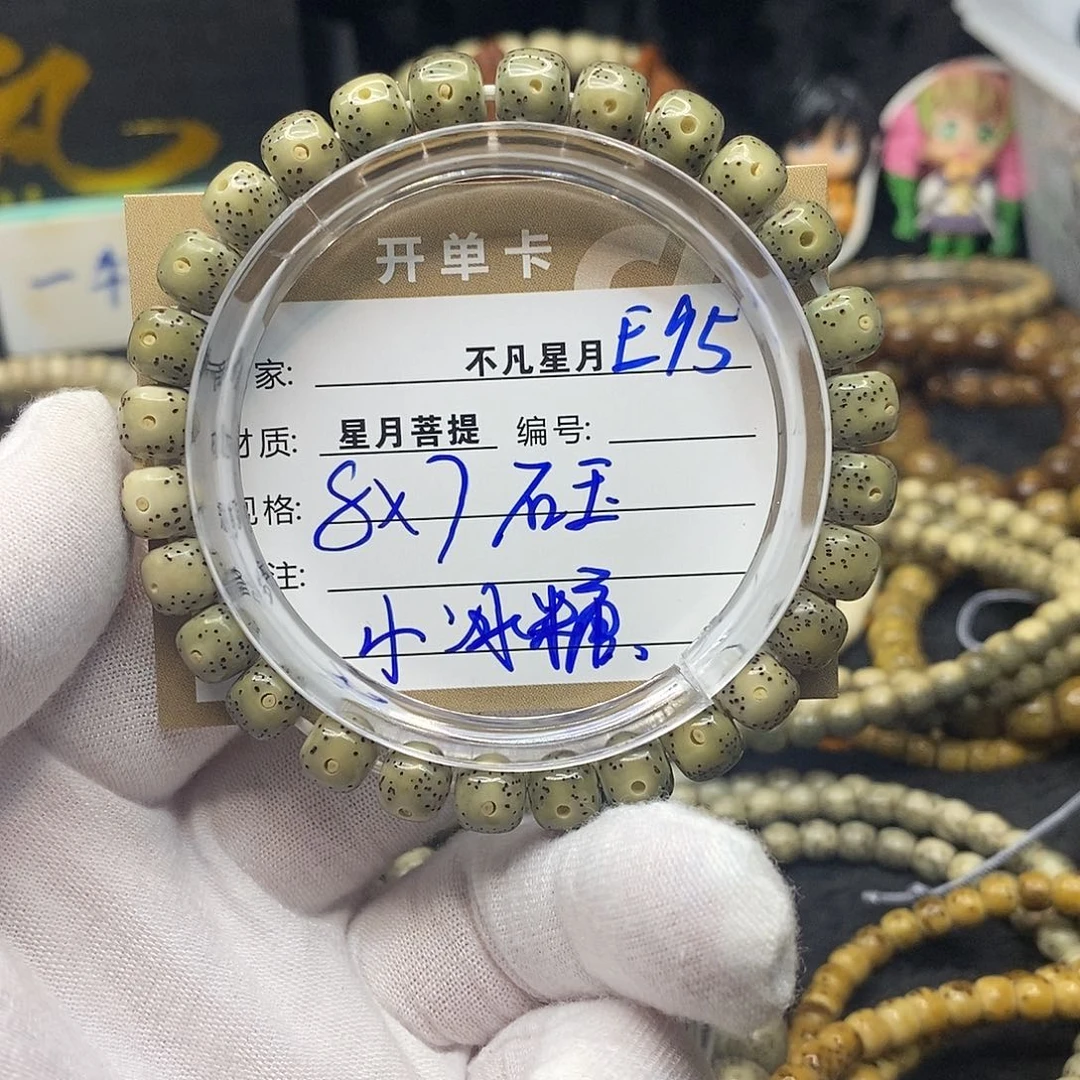 开单卡
家: 不凡星月 E95
材质: 星月菩提 编号:
规格: 8x7 石玉
注:
小冰糖、
一年